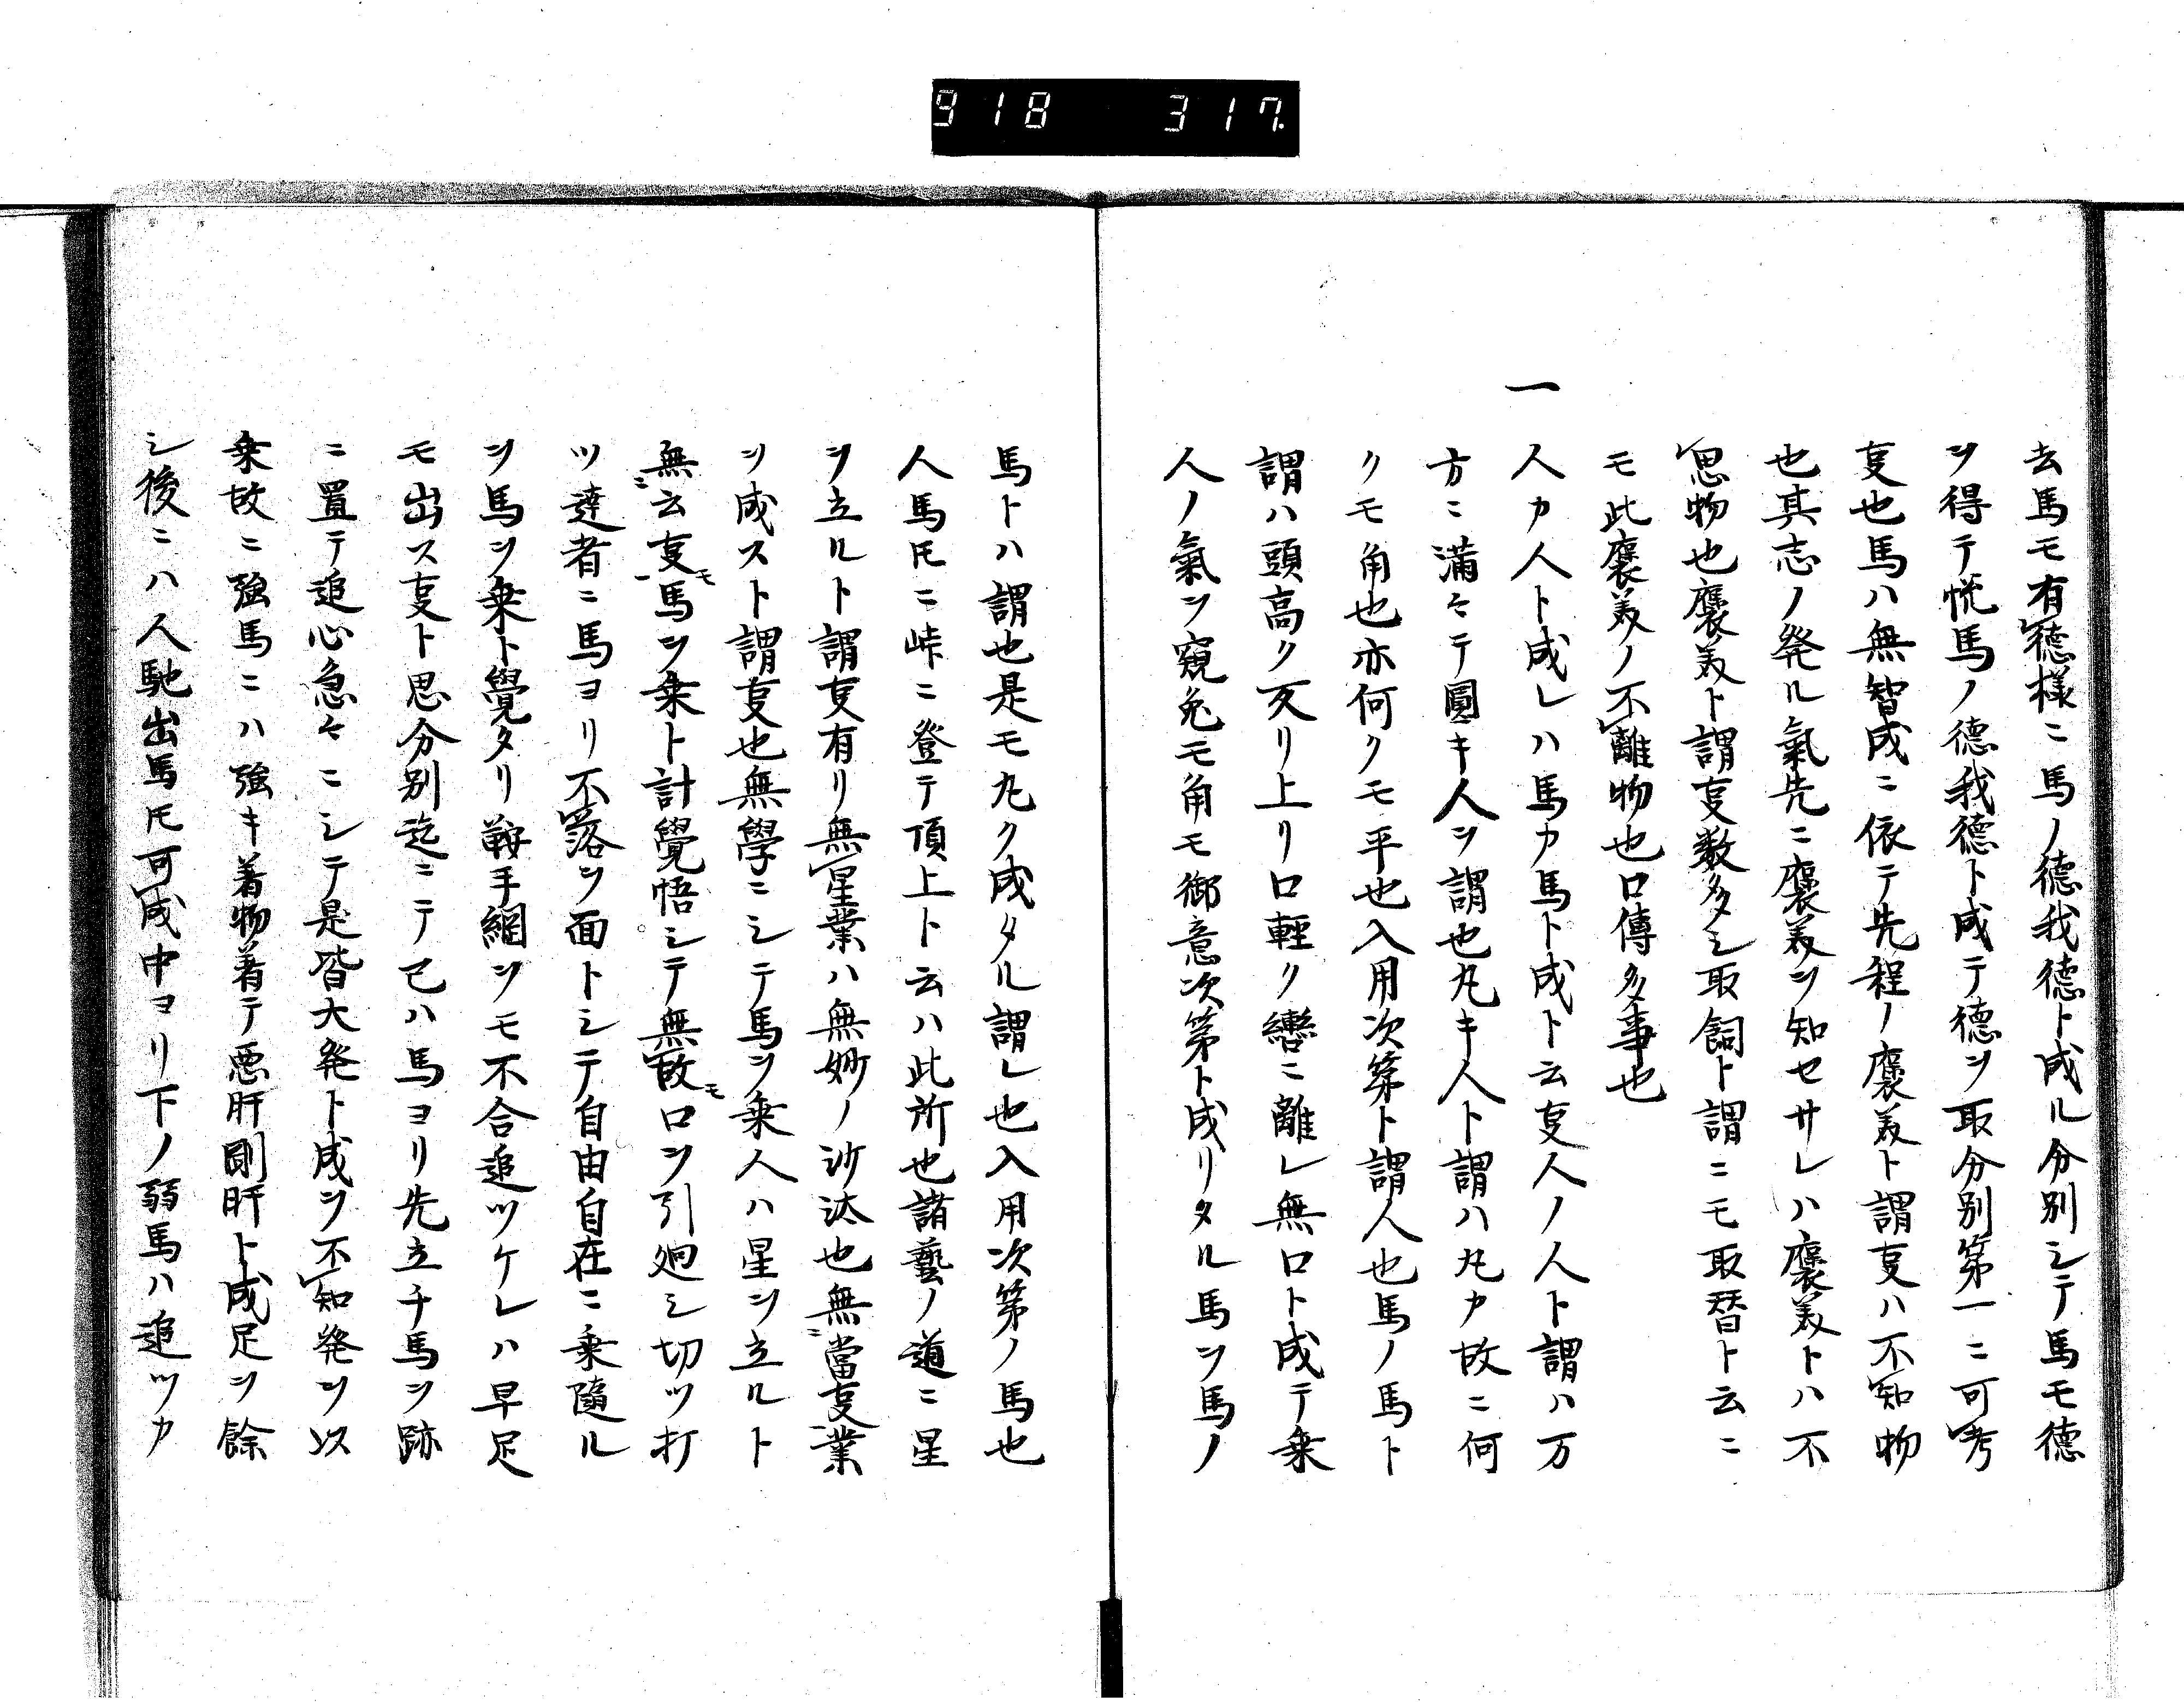 918 317
去馬モ有德樣ニ馬ノ德我德ト成ル分別シテ馬モ德
ヲ得テ悦馬ノ德我德ト成テ德ヲ取分別第一ニ可考
叓也馬ハ無智成ニ依テ先程ノ褒美ト謂叓ハ不知物
也其志ノ発ル氣先ニ褒美ヲ知セサレハ褒美トハ不
思物也褒美ト謂叓数多シ取飼ト謂ニモ取替ト云ニ
モ此褒美ノ不離物也口傳多事也
一 人カ人ト成レハ馬カ馬ト成ト云叓人ノ人ト謂ハ万
方ニ満々テ圓キ人ヲ謂也丸キ人ト謂ハ丸カ故ニ何
クモ角也亦何クモ平也入用次第ト謂人也馬ノ馬ト
謂ハ頭高ク反リ上リ口輕ク轡ニ離レ無口ト成テ乗
人ノ氣ヲ窺兎モ角モ御意次第ト成リタル馬ヲ馬ノ
馬トハ謂也是モ丸ク成タル謂レ也入用次第ノ馬也
人馬𪜈ニ峠ニ登テ頂上ト云ハ此所也諸藝ノ道ニ星
ヲ立ルト謂叓有リ無星業ハ無妙ノ沙汰也無ニ當叓業
ヲ成スト謂叓也無學ニシテ馬ヲ乗人ハ星ヲ立ルト
無ニ云叓一モ馬ヲ乗ト計覺悟シテ無故モ口ヲ引廻シ切ツ打
ツ達者ニ馬ヨリ不落ヲ面トシテ自由自在ニ乗隨ル
ヲ馬ヲ乗ト覺タリ鞍手綱ヲモ不合追ツケレハ早足
モ出ス叓ト思分別迄ニテ己ハ馬ヨリ先立チ馬ヲ跡
ニ置テ追心急々ニシテ是皆大発ト成ヲ不知発ヲ以
乗故ニ強馬ニハ強キ着物着テ悪肝剛肝ト成足ヲ餘
シ後ニハ人馳出馬𪜈可成中ヨリ下ノ弱馬ハ追ツカ